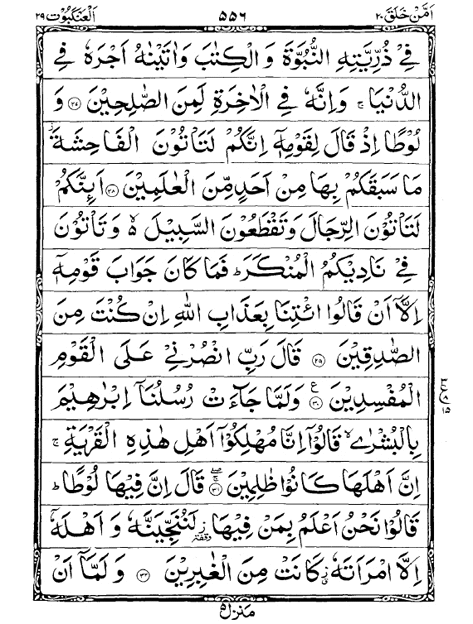 اَمَّنْ خَلَقَ ٢٠ ٥٥٦ اَلْعَنْكَبُوْت ٢٩
فِیْ ذُرِّیَّتِهِ النُّبُوَّةَ وَ الْكِتٰبَ وَاٰتَیْنٰهُ اَجْرَهٗ فِی
الدُّنْیَا ۚ وَاِنَّهٗ فِی الْاٰخِرَةِ لَمِنَ الصّٰلِحِیْنَ ۝ وَ
لُوْطًا اِذْ قَالَ لِقَوْمِهٖۤ اِنَّكُمْ لَتَاْتُوْنَ الْفَاحِشَةَ ؗ
مَا سَبَقَكُمْ بِهَا مِنْ اَحَدٍ مِّنَ الْعٰلَمِیْنَ ۝ اَىِٕنَّكُمْ
لَتَاْتُوْنَ الرِّجَالَ وَتَقْطَعُوْنَ السَّبِیْلَ ۙ۬ وَتَاْتُوْنَ
فِیْ نَادِیْكُمُ الْمُنْكَرَ ؕ فَمَا كَانَ جَوَابَ قَوْمِهٖۤ
اِلَّاۤ اَنْ قَالُوا ائْتِنَا بِعَذَابِ اللّٰهِ اِنْ كُنْتَ مِنَ
الصّٰدِقِیْنَ ۝ قَالَ رَبِّ انْصُرْنِیْ عَلَی الْقَوْمِ
الْمُفْسِدِیْنَ ۝ وَلَمَّا جَآءَتْ رُسُلُنَاۤ اِبْرٰهِیْمَ
بِالْبُشْرٰی ۙ قَالُوْۤا اِنَّا مُهْلِكُوْۤا اَهْلِ هٰذِهِ الْقَرْیَةِ ۚ
اِنَّ اَهْلَهَا كَانُوْا ظٰلِمِیْنَ ۝ قَالَ اِنَّ فِیْهَا لُوْطًا ؕ
قَالُوْا نَحْنُ اَعْلَمُ بِمَنْ فِیْهَا ؗ لَنُنَجِّیَنَّهٗ وَ اَهْلَهٗۤ
اِلَّا امْرَاَتَهٗ ؗ كَانَتْ مِنَ الْغٰبِرِیْنَ ۝ وَ لَمَّاۤ اَنْ
منزل ٥